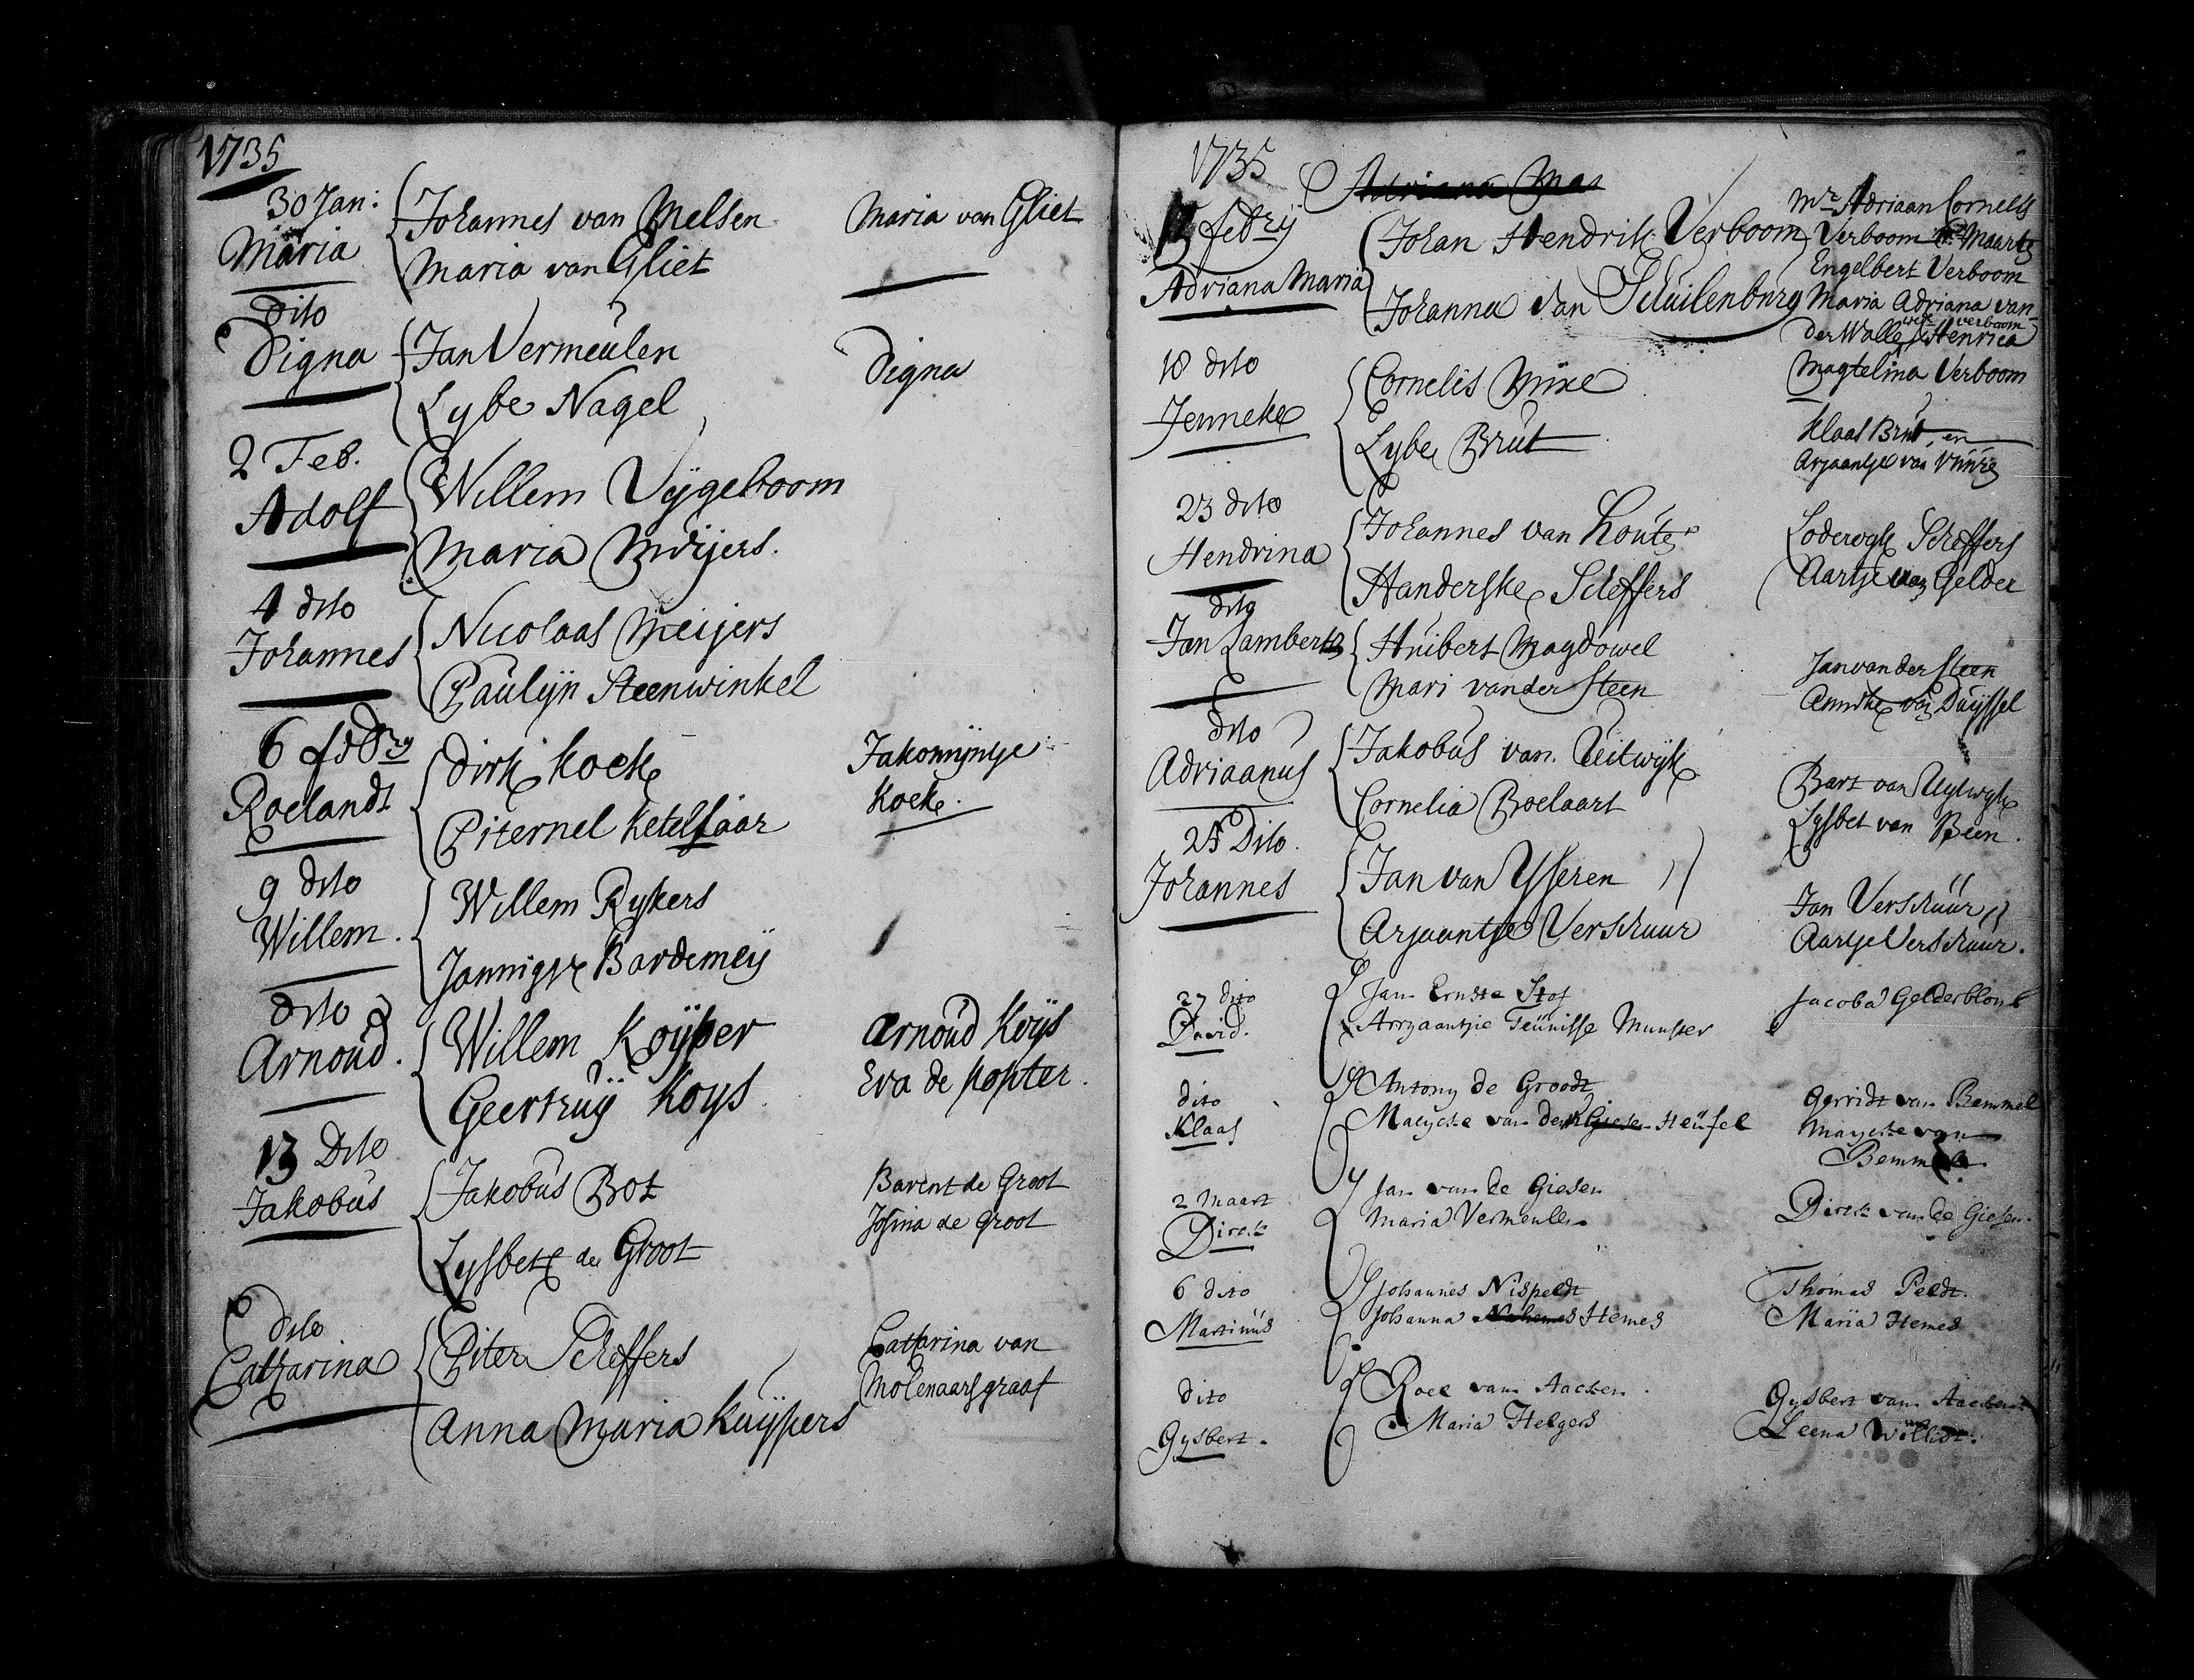 1735
30 Jan:
Maria
Johannes van Melsen
Maria van Gliet
Maria van Gliet
dito
Digna
Jan Vermeulen
Lybe Nagel
Digna
2 Feb.
Adolf
Willem Vijgeboom
Maria Mrijers.
4 dito
Johannes
Nicolaas Meijers
Paulijn Steenwinkel
6 febry
Roelandt
Dirk Koek
Piternel Ketelsaar
Jakomijntje
Koek.
9 dito
Willem.
Willem Rykers
Jannigje Bardemeij
dito
Arnoud.
Willem Koijper
Geertruij Koys
Arnoud Koijs
Eva de Kopter.
13 Dito
Jakobus
Jakobus Bot
Lysbeth de Groot
Barent de Groot
Josina de Groot
dito
Catharina
Piter Scheffers
Anna Maria Kuijpers
Catharina van
Molenaarsgraaf
1735
Adriana Mar
febrij
Adriana Maria
Johan Hendrik Verboom
Johanna van Schuilenburg
Mr Adriaan Cornelis
Verboom Maarts
Engelbert Verboom
Maria Adriana van
der Walle Henrica
verboom
Magtelina Verboom
18 dito
Jenneke
Cornelis
Lybe Brut
Klaas Brut, en
Arjaantje van
23 dito
Hendrina
Johannes van Houte
Handerske Scheffers
Loderwyk Scheffers
Aartje van Gelder
dito
Jan Lambertus
Huibert Magdowel
Mari vander Steen
Jan vander Steen
van Duijssel
dito
Adriaanus
Jakobus van Uitwijk
Cornelia Boelaart
Bart van Uytwyk
Lysbet van Been.
25 Dito.
Johannes
Jan van Ysseren
Arjaantje Verschuur
Jan Verschuur
Aartje Verschuur.
27 dito
David.
Jan Ernste Stof
Arrjaantjie Teunisse Munster
Jacoba Gelderblom
dito
Klaas
Antony de Groodt
Maeycke van den Giesen Heufel
Gerridt van Bemmel
Maycke van
Bemmel.
2 Maart
Dirck
Jan van de Giesen
Maria Vermeulen
Dirck van de Giesen.
6 dito
Martinus
Johannes Nispeldt
Johanna Hemes
Thomas Peldt.
Maria Hemes
dito
Gysbert.
Roel van Aacken.
Maria Hebgers
Gysbert van Aacken
Leena